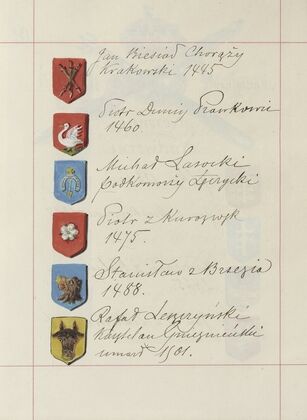 Jan Biesiad Chorąży
Krakowski 1445
Piotr Dunin Prawkowic
1460
Michał Lasocki
podkomorzy Łęczycki
Piotr z Kurozwęk
1475.
Stanisław z Brzezia
1488.
Rafał Leszczyński
Kasztelan Gnieznieński
umarł 1501.